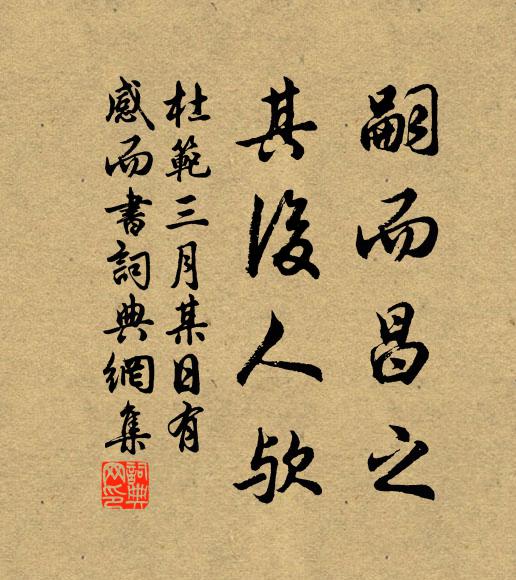 嗣而昌之
其後人欤
杜範三月某日有
感而書詞典網集
詞典
网印